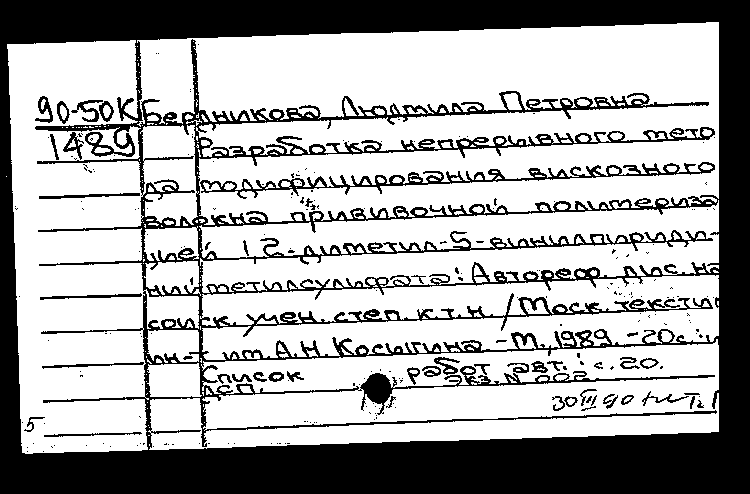 90-50К Бердникова, Людмила Петровна.
1489 Разработка непрерывного мето
да модифицирования вискозного
волокна прививочной полимериза
цией 1,2-диметил-5-винилпириди-
нийметилсульфата: Автореф. дис. на
соиск. учен. степ. к.т.н. / Моск. текстил
ин-т им. А.Н. Косыгина. - М., 1989. - 20с.: и
Список работ авт.: с. 20.
ДСП. Экз. N 002
30 III 90
5